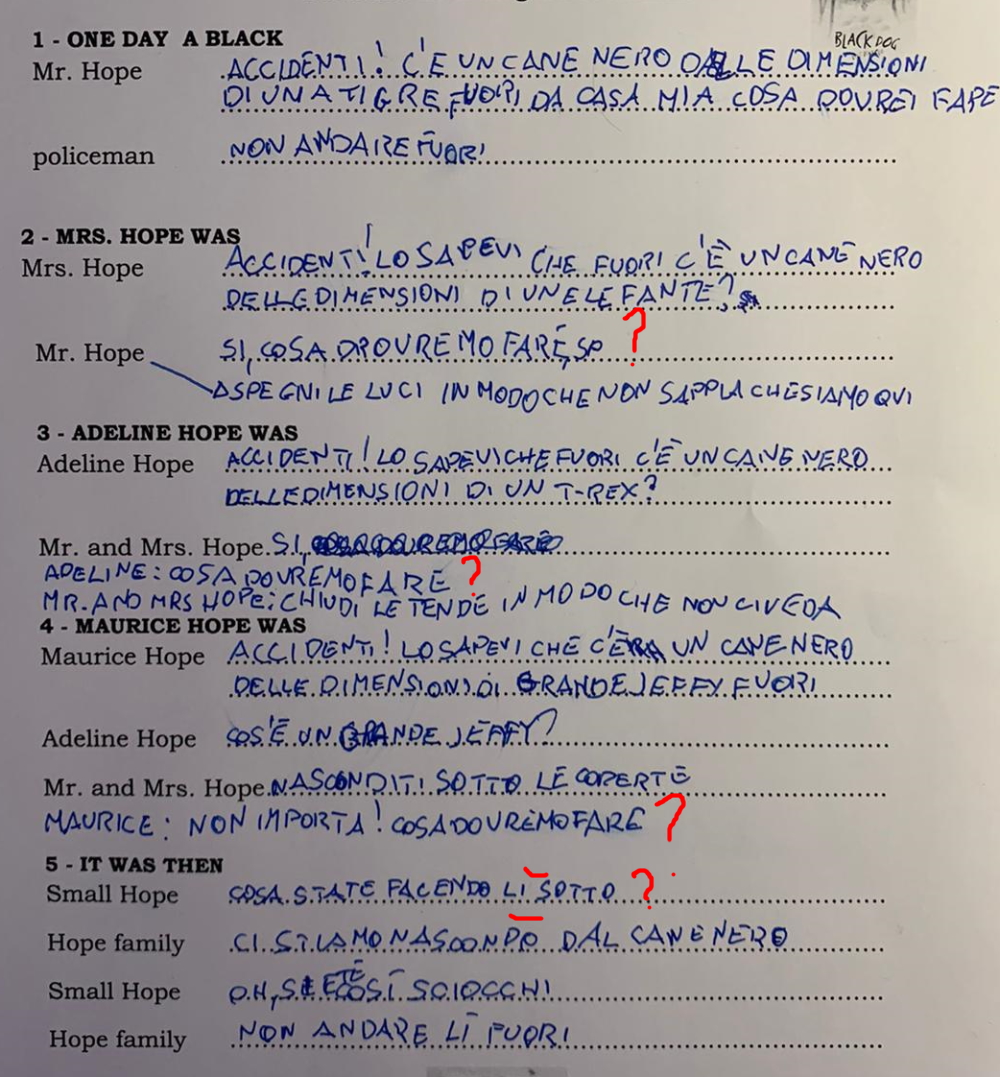 BLACK DOG
1 - ONE DAY A BLACK
Mr. Hope ACCIDENTI! C'È UN CANE NERO DALLE DIMENSIONI
DI UNA TIGRE FUORI DA CASA MIA COSA DOVREI FARE
policeman NON ANDARE FUORI
2 - MRS. HOPE WAS
Mrs. Hope ACCIDENTI! LO SAPEVI CHE FUORI C'È UN CANE NERO
DELLE DIMENSIONI DI UN ELEFANTE?
Mr. Hope SI, COSA DROVREMO FARE, SP ?
SPEGNI LE LUCI IN MODO CHE NON SAPPIA CHE SIAMO QUI
3 - ADELINE HOPE WAS
Adeline Hope ACCIDENTI! LO SAPEVI CHE FUORI C'È UN CANE NERO
DELLE DIMENSIONI DI UN T-REX?
Mr. and Mrs. Hope SI,
ADELINE: COSA DOVREMO FARE ?
MR. AND MRS HOPE: CHIUDI LE TENDE IN MODO CHE NON CI VEDA
4 - MAURICE HOPE WAS
Maurice Hope ACCIDENTI! LO SAPEVI CHE C'ERA UN CANE NERO
DELLE DIMENSIONI DI GRANDE JEFFY FUORI
Adeline Hope COS'È UN GRANDE JEFFY?
Mr. and Mrs. Hope NASCONDITI SOTTO LE COPERTE
MAURICE: NON IMPORTA! COSA DOVREMO FARE ?
5 - IT WAS THEN
Small Hope COSA STATE FACENDO LI SOTTO ?
Hope family CI STIAMO NASCONDO DAL CANE NERO
Small Hope OH, SIETE COSÌ SCIOCCHI
Hope family NON ANDARE LÌ FUORI